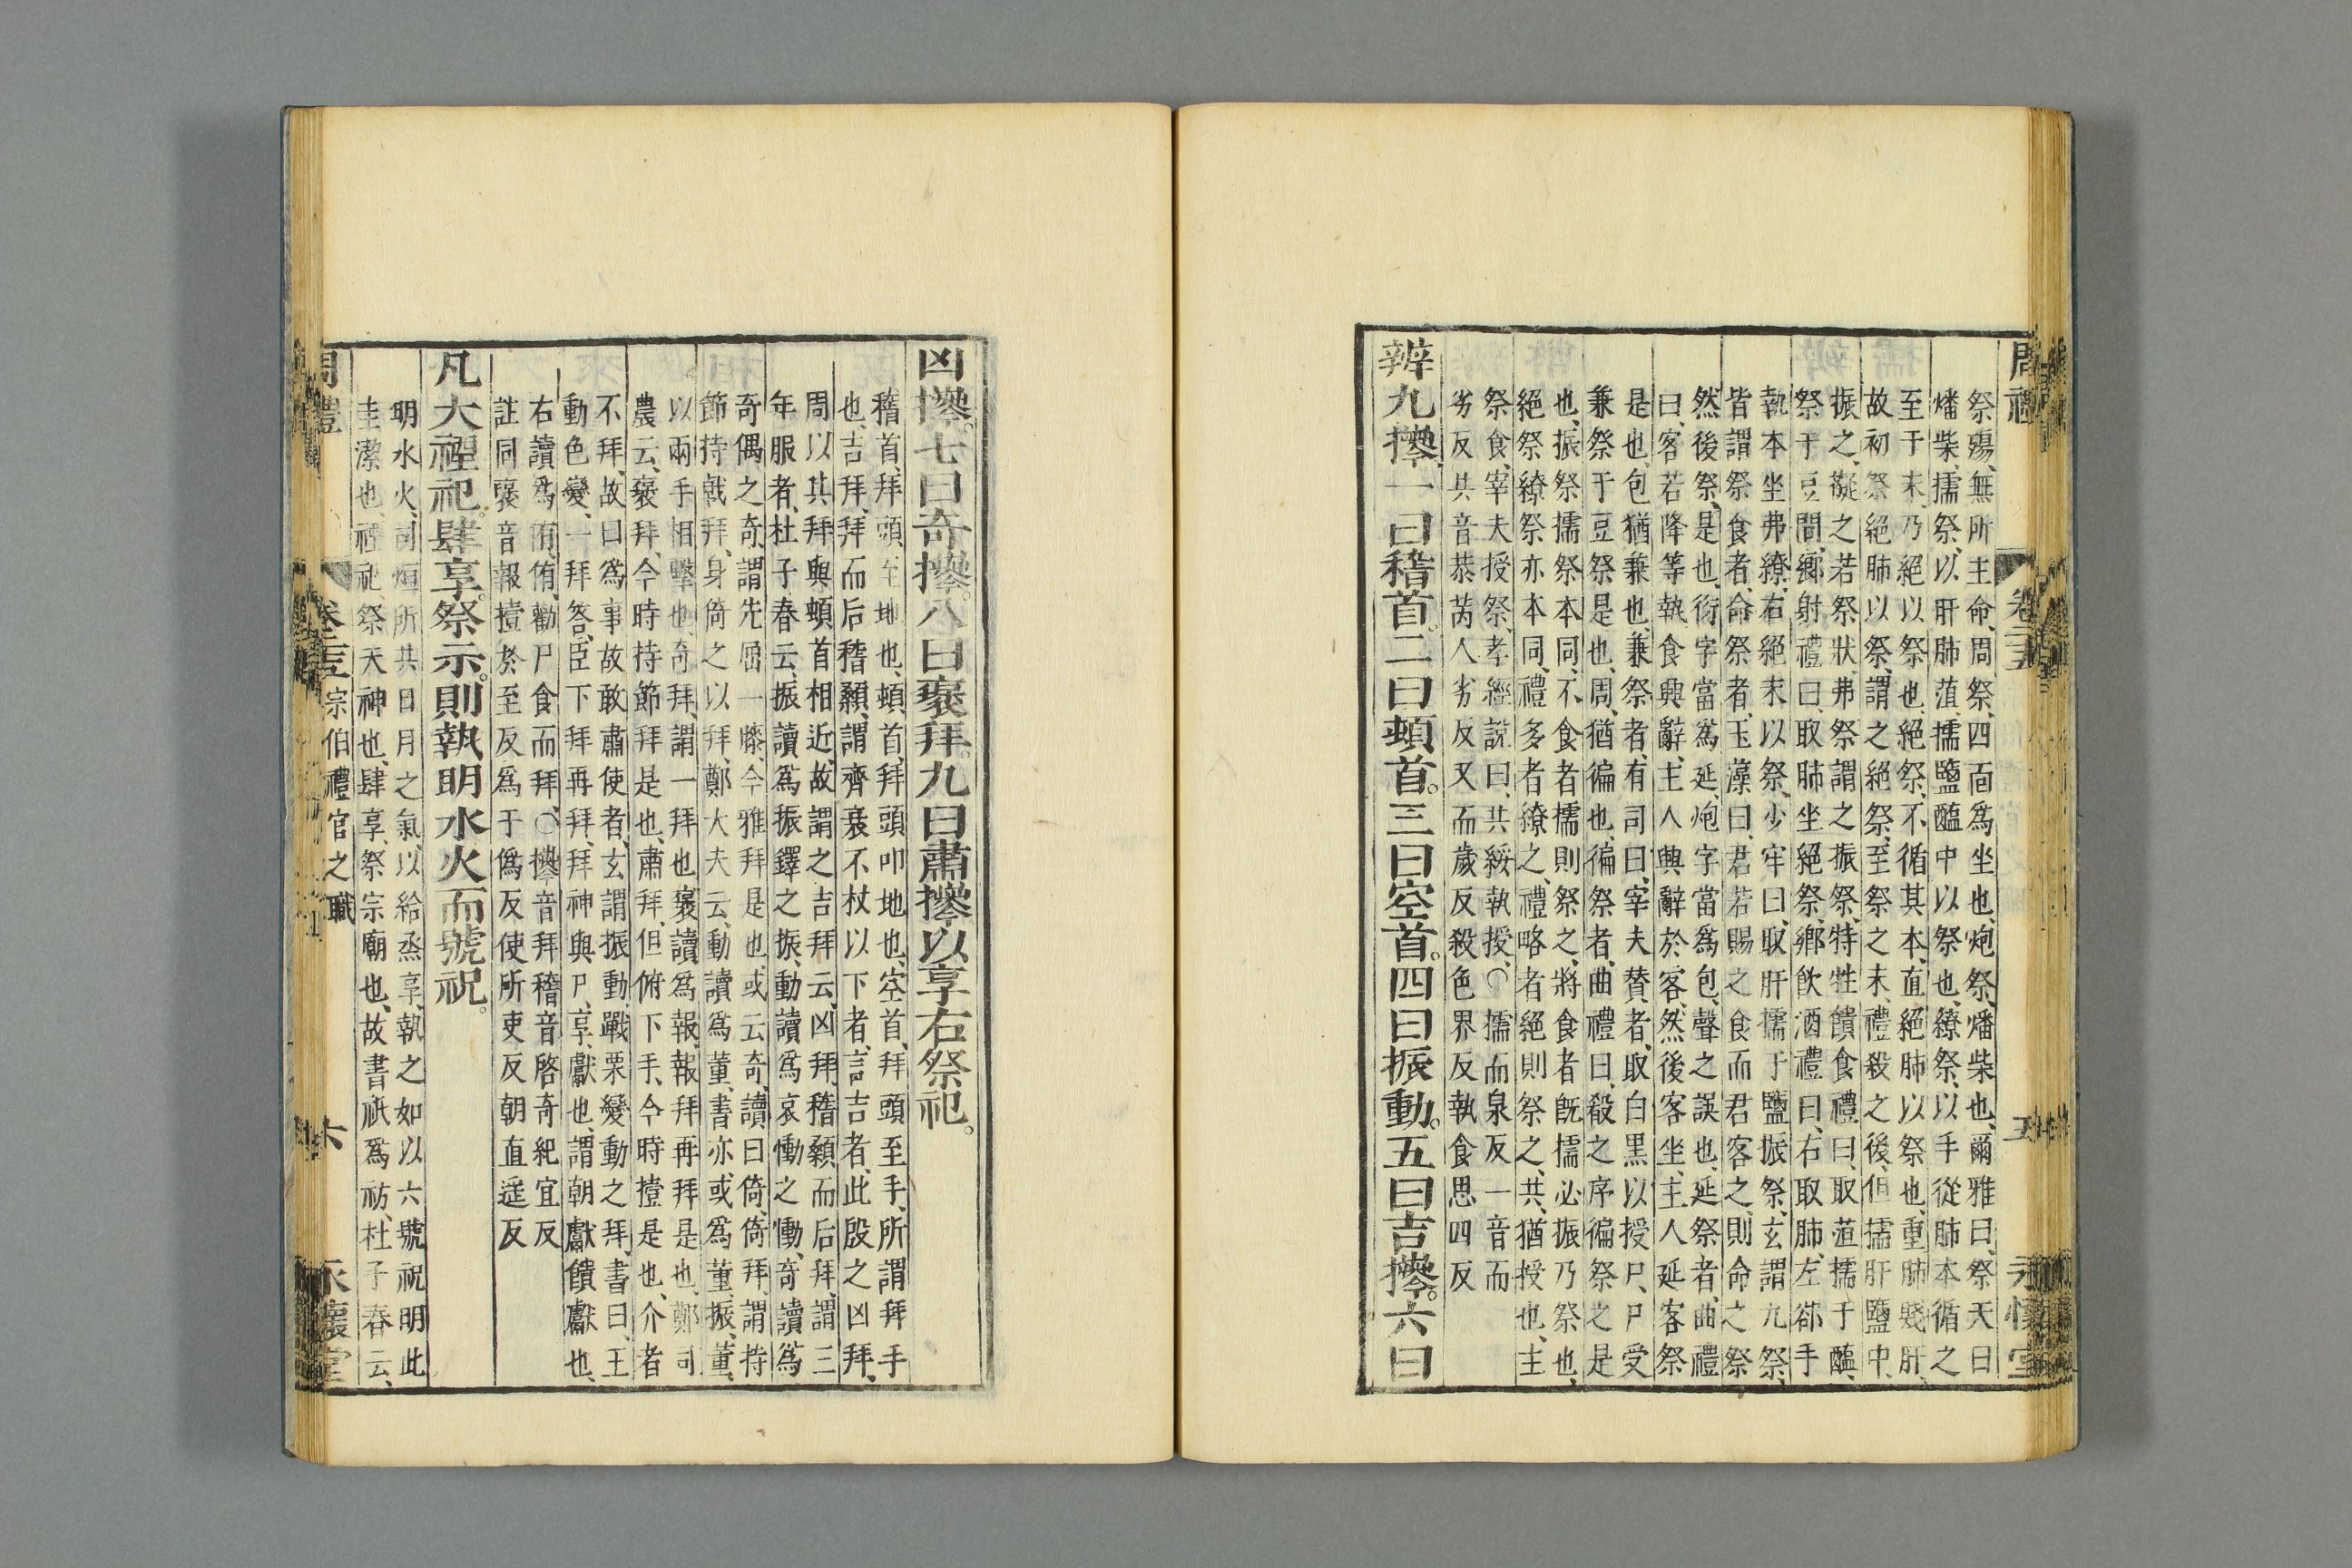 周禮 卷二十五 五 永懷堂
祭殤、無所主命、周祭、四面爲坐也、炮祭、燔柴也、爾雅曰、祭天曰
燔柴、擩祭、以肝肺菹、擩鹽醢中以祭也、繚祭、以手從肺本循之
至于末、乃絕以祭也、絕祭、不循其本、直絕肺以祭也、重肺賤肝、
故初祭絕肺以祭、謂之絕祭、至祭之末、禮殺之後、但擩肝鹽中、
振之、擬之若祭狀、弗祭謂之振祭、特牲饋食禮曰、取菹擩于醢、
祭于豆間、鄉射禮曰、取肺坐絕祭、鄉飲酒禮曰、右取肺、左郤手
執本坐弗繚、右絕末以祭、少牢曰、取肝擩于鹽振祭、玄謂九祭、
皆謂祭食者、命祭者、玉藻曰、君若賜之食而君客之、則命之祭
然後祭、是也、衍字當爲延、炮字當爲包、聲之誤也、延祭者、曲禮
曰、客若降等執食興辭、主人興辭於客、然後客坐、主人延客祭
是也、包猶兼也、兼祭者、有司曰、宰夫贊者、取白黑以授尸、尸受
兼祭于豆祭是也、周猶徧也、徧祭者、曲禮曰、殽之序徧祭之是
也、振祭擩祭本同、不食者擩則祭之、將食者旣擩必振乃祭也、
絕祭繚祭亦本同、禮多者繚之、禮略者絕則祭之、共、猶授也、主
祭食、宰夫授祭、孝經說曰、共綏執授、○擩而泉反一音而
劣反共音恭芮人劣反又而歲反殺色界反執食思四反
辨九㩟、一曰稽首。二曰頓首。三曰空首。四曰振動。五曰吉㩟。六曰
凶㩟。七曰奇㩟。八曰襃拜。九曰肅㩟以享右祭祀。
稽首、拜頭至地也、頓首、拜頭叩地也、空首、拜頭至手、所謂拜手
也、吉拜、拜而后稽顙、謂齊衰不杖以下者、言吉者、此殷之凶拜、
周以其拜與頓首相近、故謂之吉拜云、凶拜、稽顙而后拜、謂三
年服者、杜子春云、振讀爲振鐸之振、動讀爲哀慟之慟、奇讀爲
奇偶之奇、謂先屈一膝、今雅拜是也、或云奇讀曰倚、倚拜、謂持
節持戟拜、身倚之以拜、鄭大夫云、動讀爲董、書亦或爲董、振董、
以兩手相擊也、奇拜、謂一拜也、襃讀爲報、報拜再拜是也、鄭司
農云、襃拜、今時持節拜是也、肅拜、但俯下手、今時撎是也、介者
不拜、故曰爲事故敢肅使者、玄謂振動、戰栗變動之拜、書曰、王
動色變、一拜答、臣下拜再拜、拜神與尸、享、獻也、謂朝獻饋獻也、
右讀爲侑、侑、勸尸食而拜、○㩟音拜稽音啓奇紀宜反
註同襃音報撎於至反爲于僞反使所吏反朝直遥反
凡大禋祀。肆享。祭示。則執明水火而號祝。
明水火、司烜所共日月之氣、以給烝享、執之如以六號祝明此
圭潔也、禋祀、祭天神也、肆享、祭宗廟也、故書祇爲祊、杜子春云、
周禮 卷二十五 宗伯禮官之職 六 永懷堂